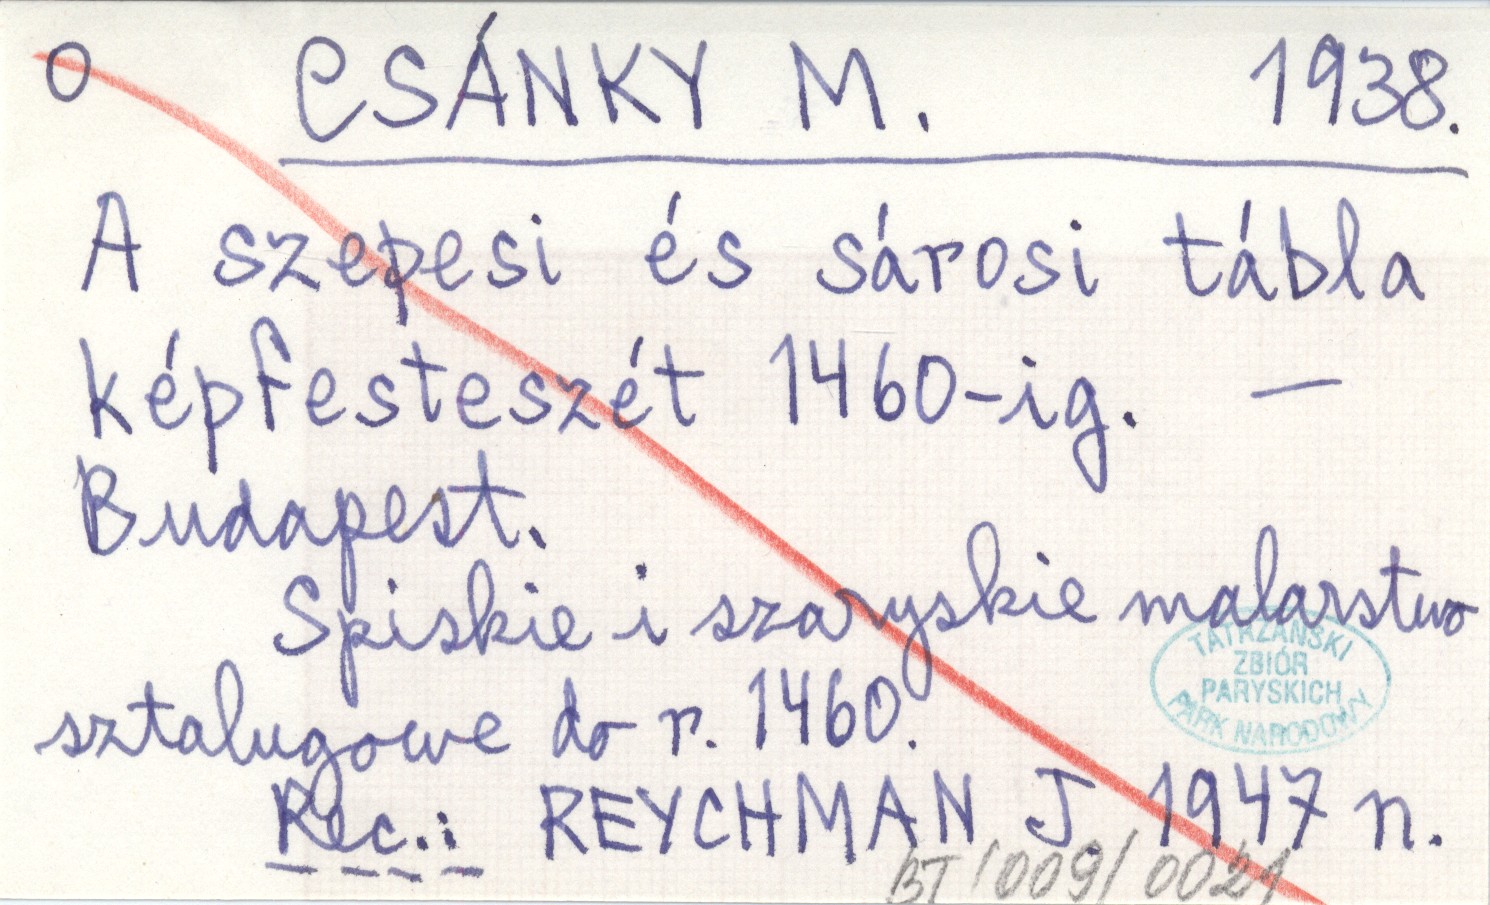 O CSÁNKY M. 1938.
A szepesi és sárosi tábla
képfesteszét 1460-ig. —
Budapest.
Spiskie i szaryskie malarstwo
sztalugowe do r. 1460.
TATRZAŃSKI
ZBIÓR
PARYSKICH
PARK NARODOWY
Rec.: REYCHMAN J 1947 n.
BT/009/0021